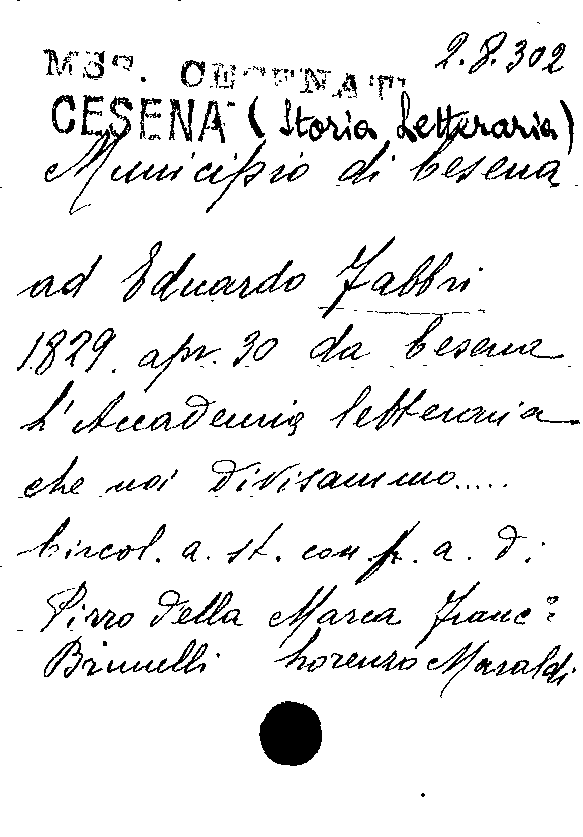 2.8.302
MSS. CESENATI
CESENA (Storia Letteraria)
Municipio di Cesena
ad Eduardo Fabbri
1829. apr. 30 da Cesena
L'Accademia letteraria
che noi divisammo.....
Circol. a. st. con f. a. di
Pirro Della Marca Franc.º
Brunelli Lorenzo Maraldi